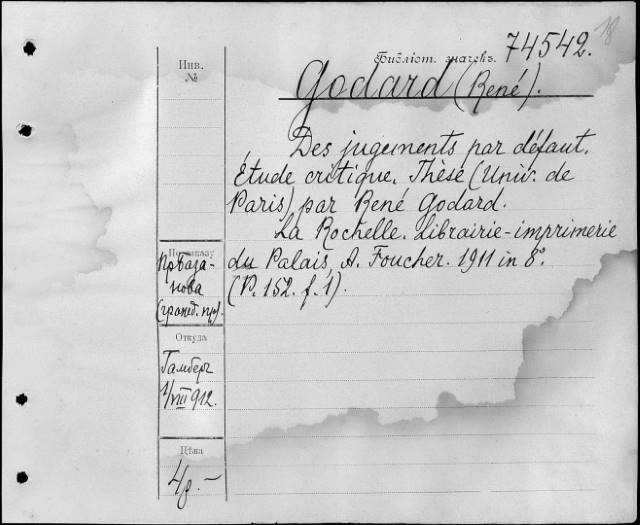 18
Библіот. значекъ. 74542.
Инв.
№
Godard (René).
Des jugements par défaut.
Étude critique. Thèse (Univ. de
Paris) par René Godard.
La Rochelle. Librairie-imprimerie
du Palais, A. Foucher. 1911 in 8°.
(P. 152. f. 1).
По заказу
Пр. База-
нова
(гражд. пр.).
Откуда
Гамберъ
1/VIII 912.
Цѣна
4 р. —